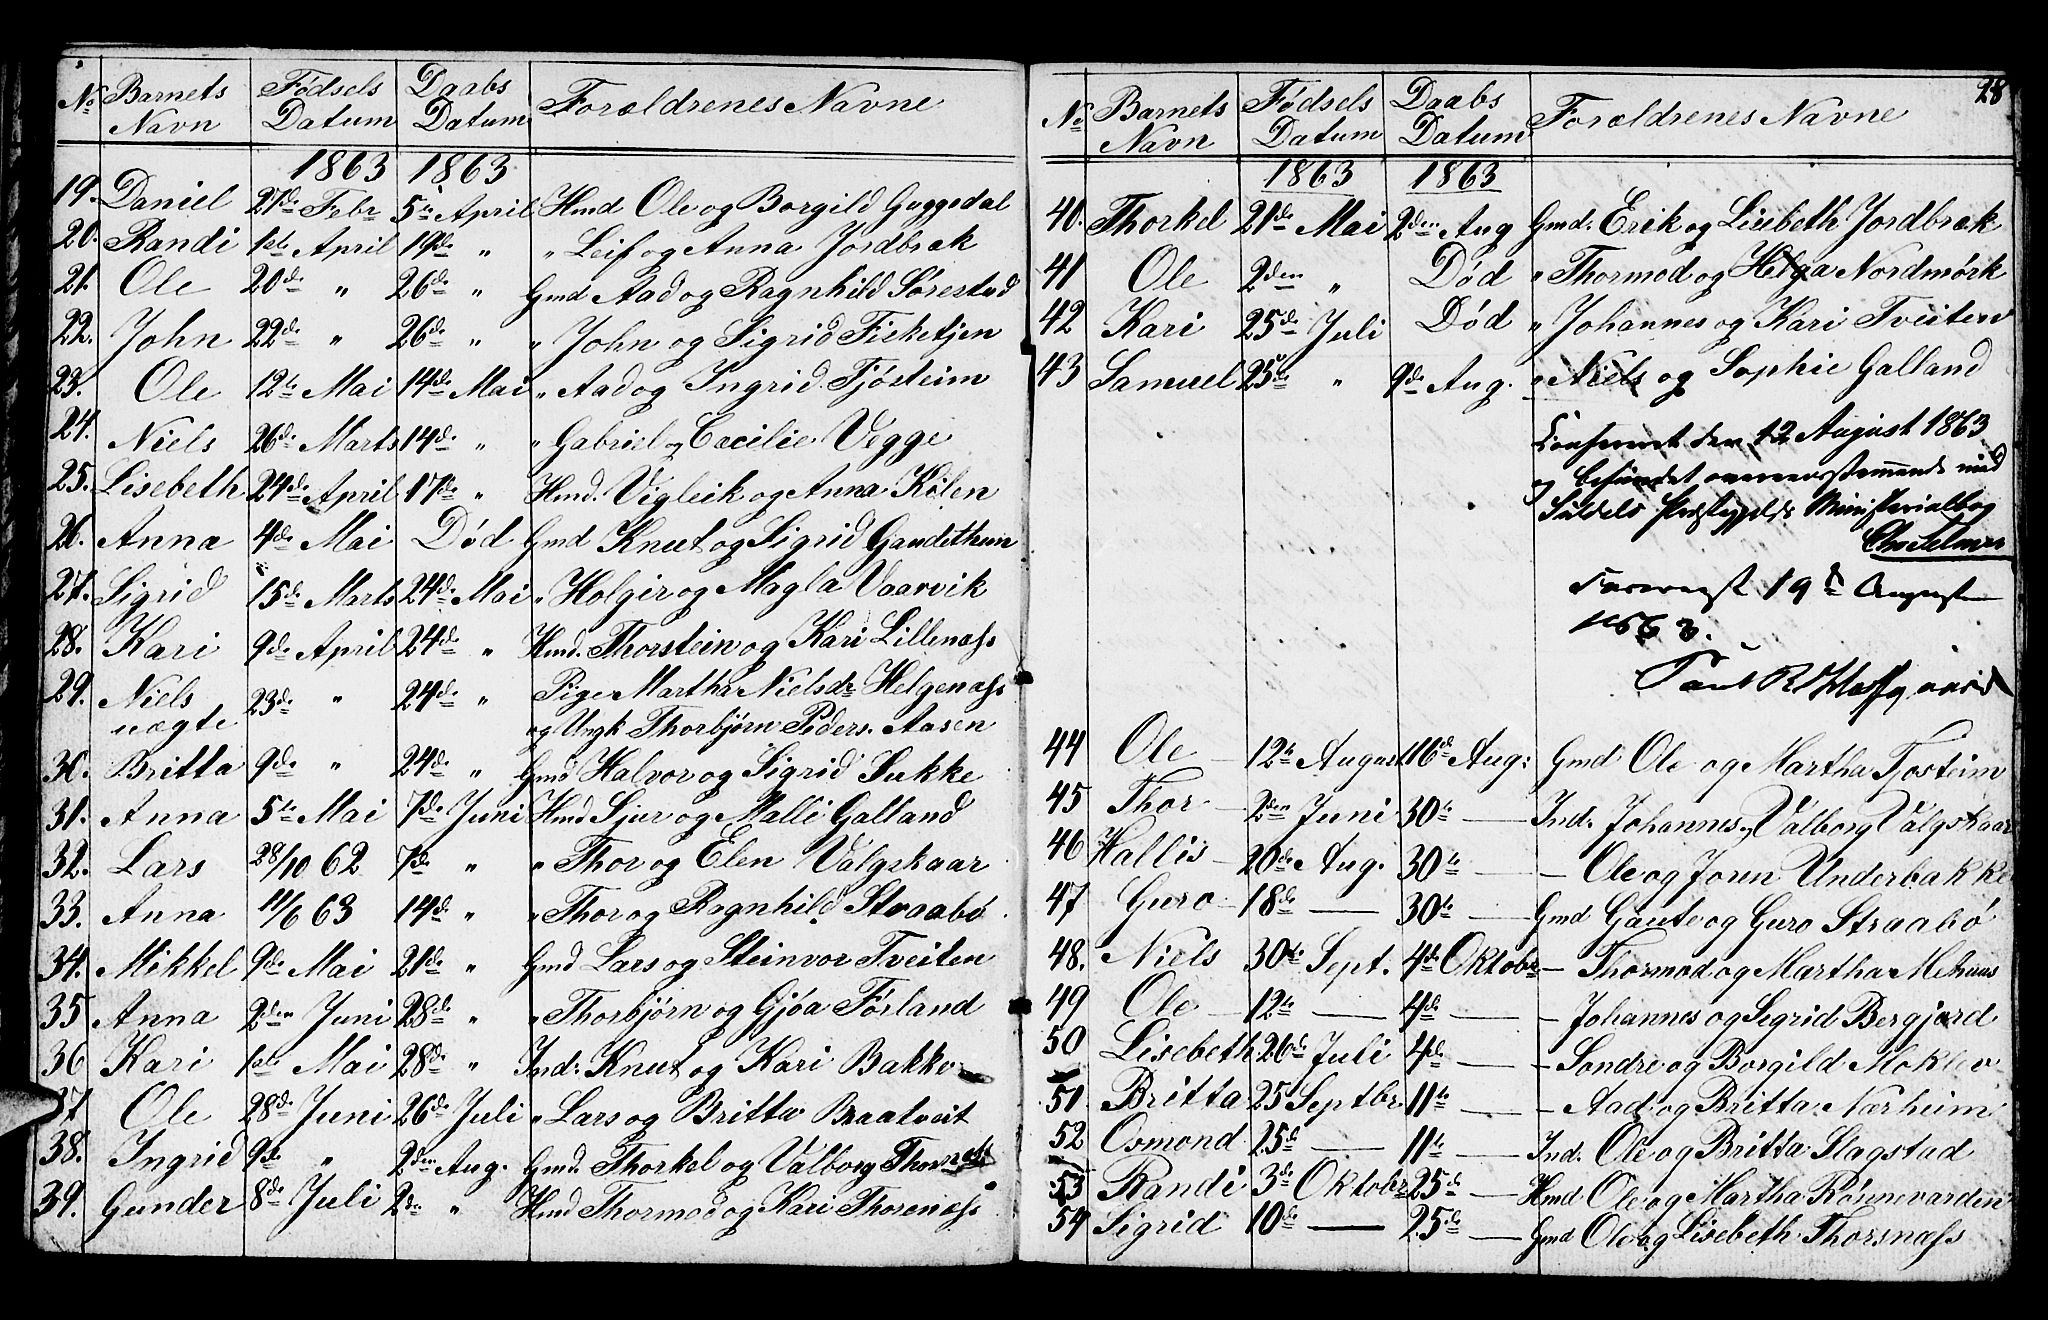 No Barnets Navn Fødsels Datum Daabs Datum Forældrenes Navne
1863 1863
19. Daniel 27de Febr 5te April Hmd Ole og Borgild Guggedal
20. Randi 1ste April 19de " " Leif og Anna Jordbræk
21. Ole 20de " 26de " Gmd Aad og Ragnhild Sørestad
22. John 22de " 26de " " John og Sigrid Fisketjen
23. Ole 12te Mai 14de Mai " Aad og Ingrid Tjøsteim
24. Niels 26de Marts 14de " " Gabriel og Cæcilie Vegge
25. Lisebeth 24de April 17de " Hmd. Vigleik og Anna Kilen
26. Anna 4de Mai Död Gmd Knut og Sigrid Gaudethun
27. Sigrid 15de Marts 24de Mai " Holgir og Magla Vaarvik
28. Kari 9de April 24de " Hmd. Thorstein og Kari Lillenæss
29. Niels 23de " 24de " Pige Martha Nielsdr Helgenæss
uægte og Ungk Thorbjørn Peders. Aasen
30. Britta 9de " 24de " Gmd Halvor og Sigrid Sukke
31. Anna 5te Mai 7de Juni Hmd Sjur og Malli Galland
32. Lars 28/10 62 7de " " Thor og Elen Valgskaar
33. Anna 11/6 63 14de " " Thor og Ragnhild Straabø
34. Mikkel 9de Mai 21de " Gmd Lars og Steinvor Tveiten
35 Anna 2den Juni 28de " " Thorbjørn og Gjøa Førland
36 Kari 1ste Mai 28de " Ind: Knut og Kari Bakke
37 Ole 28de Juni 26de Juli " Lars og Britta Braatveit
38. Ingrid 9de " 2den Aug. Gmd. Thorkel og Valborg
39. Gunder 8de Juli 2den " Hmd Thormod og Kari Thorenæss
28
No Barnets Navn Fødsels Datum Daabs Datum Forældrenes Navne
1863 1863
40. Thorkel 21de Mai 2den Aug Gmd. Erik og Lisebeth Jordbræk
41 Ole 2den " Död " Thormod og Helga Nordmörk
42 Kari 25de Juli Död " Johannes og Kari Tveiten
43 Samuel 25de " 9de Aug. " Niels og Sophie Galland
Confereret den 12 August 1863
og befundet overensstemmende med
Suldals Præstegjelds Ministerialbog
19d August
1863.
44 Ole 12te August 16de Aug: Gmd Ole og Martha Tjosteim
45 Thor 2den Juni 30te — Ind. Johannes og Valborg Valgskaar
46 Hallis 20de Aug. 30te — - Ole og Joren Underbakke
47 Guro 18de — 30te — Gmd Gaute og Guro Straabø
48. Niels 30te Sept. 4de Oktobr - Thormod og Martha Mehuus
49 Ole 12te — 4de — - Johannes og Segrid Bergjord
50 Lisebeth 26de Juli 4de — - Sondre og Borgild Moklev
51. Britta 25 Septbr. 11te — - Aad og Britta Nærheim
52 Osmond 15de — 11te — Ind. Ole og Britta Slagstad
53 Randi 3de Oktobr 25de — Hmd Ole og Martha Rønnevarden
54 Sigrid 10de — 25de — Gmd Ole og Lisebeth Thorsnæss